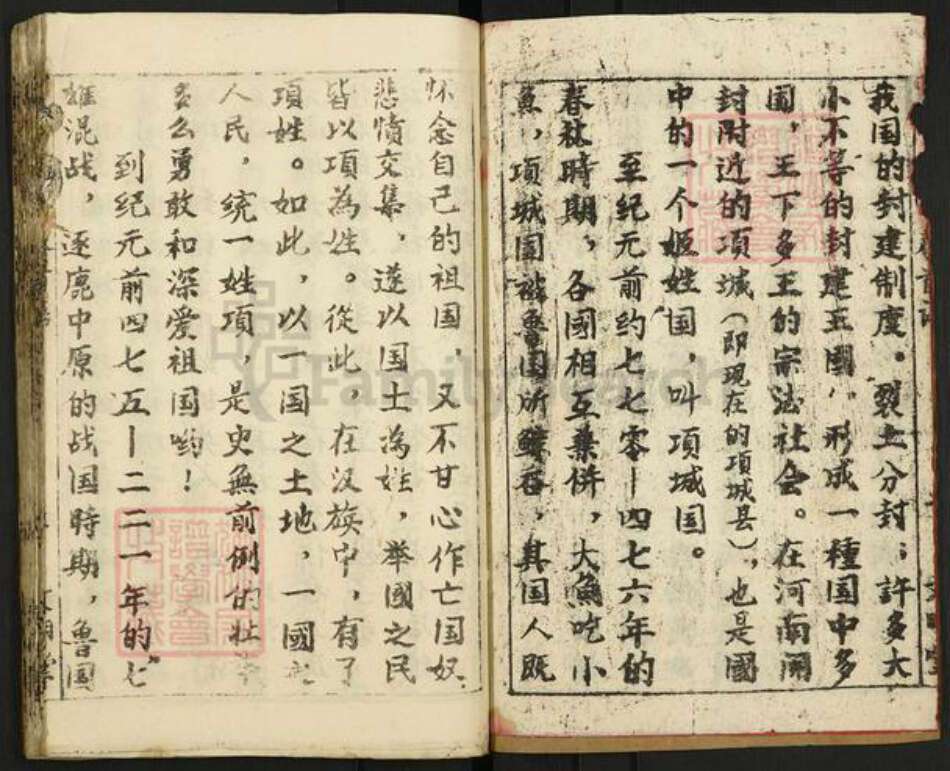 我国的封建制度。裂土分封；許多大
小不等的封建王國，形成一種国中多
国，王下多王的宗法社会。在河南開
封附近的項城（即現在的項城县），也是國
中的一个姬姓国，叫項城国。
至纪元前约七七零—四七六年的
春秋時期，各國相互兼併，大魚吃小
魚，項城国被魯国所鲸吞，其国人既
怀念自己的祖国，又不甘心作亡国奴，
悲憤交集，遂以国土為姓，舉國之民
皆以項為姓。從此，在汉族中，有了
項姓。如此，以一国之土地，一國之
人民，统一姓項，是史無前例的壮
多么勇敢和深爱祖国哟！
到纪元前四七五—二二一年的七
雄混战，逐鹿中原的战国時期，魯国
FamilySearch